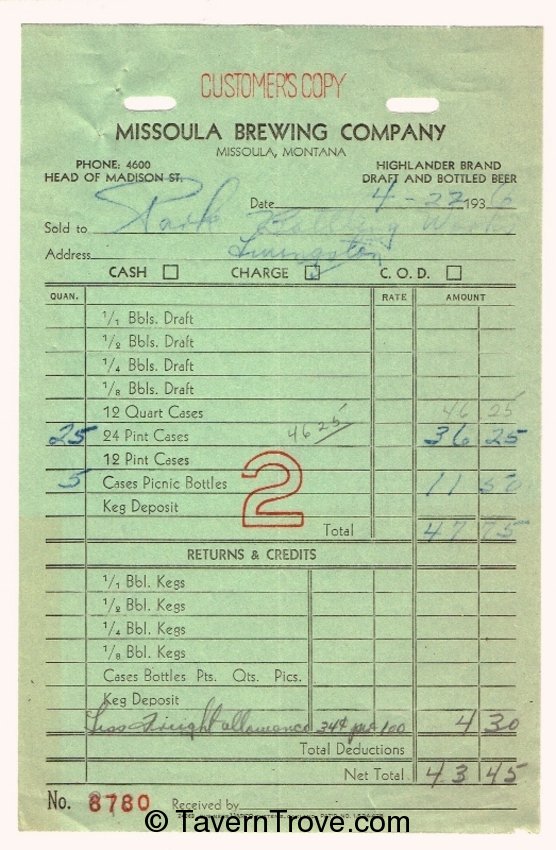 CUSTOMER'S COPY
MISSOULA BREWING COMPANY
MISSOULA, MONTANA
PHONE: 4600
HEAD OF MADISON ST.
HIGHLANDER BRAND
DRAFT AND BOTTLED BEER
Date 4-27 1936
Sold to Park Bottling Works
Address Livingston
CASH CHARGE C.O.D.
QUAN. RATE AMOUNT
1/1 Bbls. Draft
1/2 Bbls. Draft
1/4 Bbls. Draft
1/8 Bbls. Draft
12 Quart Cases 46 25
25 24 Pint Cases 46 25 36 25
12 Pint Cases
5 Cases Picnic Bottles 11 50
Keg Deposit
2
Total 47 75
RETURNS & CREDITS
1/1 Bbl. Kegs
1/2 Bbl. Kegs
1/4 Bbl. Kegs
1/8 Bbl. Kegs
Cases Bottles Pts. Qts. Pics.
Keg Deposit
Less Freight allowance 34¢ per 100 4 30
Total Deductions
Net Total 43 45
No. 8780 Received by
© TavernTrove.com